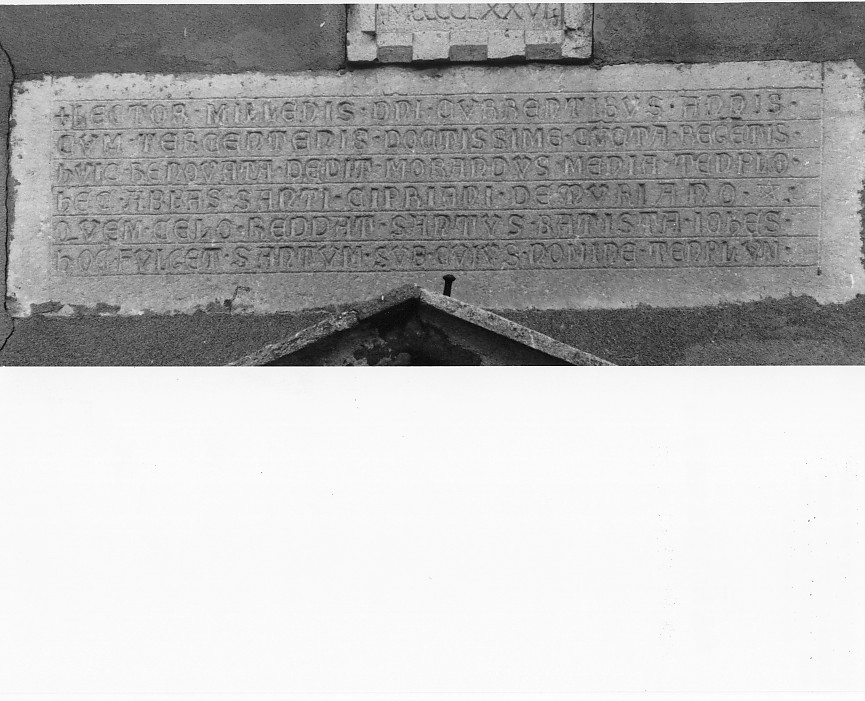 MCCCLXXVI
+ LECTOR · MILLENIS · DNI · CVRRENTIBVS · ANNIS ·
CVM · TERCENTENIS · DOCTISSIME · QVOTA · REGENIS ·
HVIC · RENOVATA · DEDIT · MORANDVS · MENIA · TEMPLO ·
HEC · ABBAS · SANTI · CIPRIANI · DEMVRIANO ·
QVEM · CELO · REDDAT · SANTVS · BATISTA · IOHES ·
HOC · FVLGET · SANTVM · SVB · CVIVS · NOMINE · TEMPLVM ·